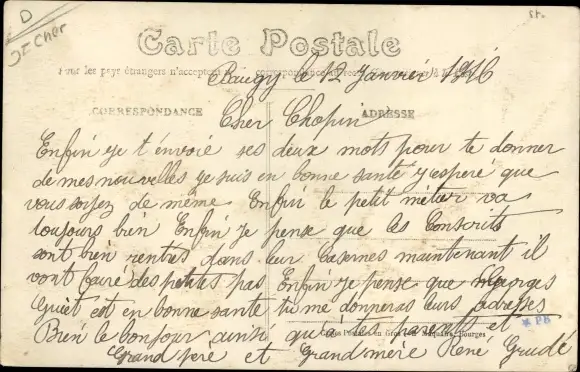 D
Jt Cher
Carte Postale
Pour les pays étrangers n'acceptent pas
Brugy le 12 Janvier 1916
CORRESPONDANCE
ADRESSE
Cher Chopin
Enfin je t'envoie ses deux mots pour te donner
de mes nouvelles je suis en bonne santé j'esperé que
vous soyez de même Enfin le petit métier va
toujours bien Enfin je pense que les Conscrits
sont bien rentres dans leur Casernes maintenant il
vont fairé des petits pas Enfin je pense que Georges
Guiet est en bonne santé tu me donneras leurs adresses
Bien le bonjour ainsi qu'à tes parents et
Grand père et Grand mére René Grudé
Bourges
* PB